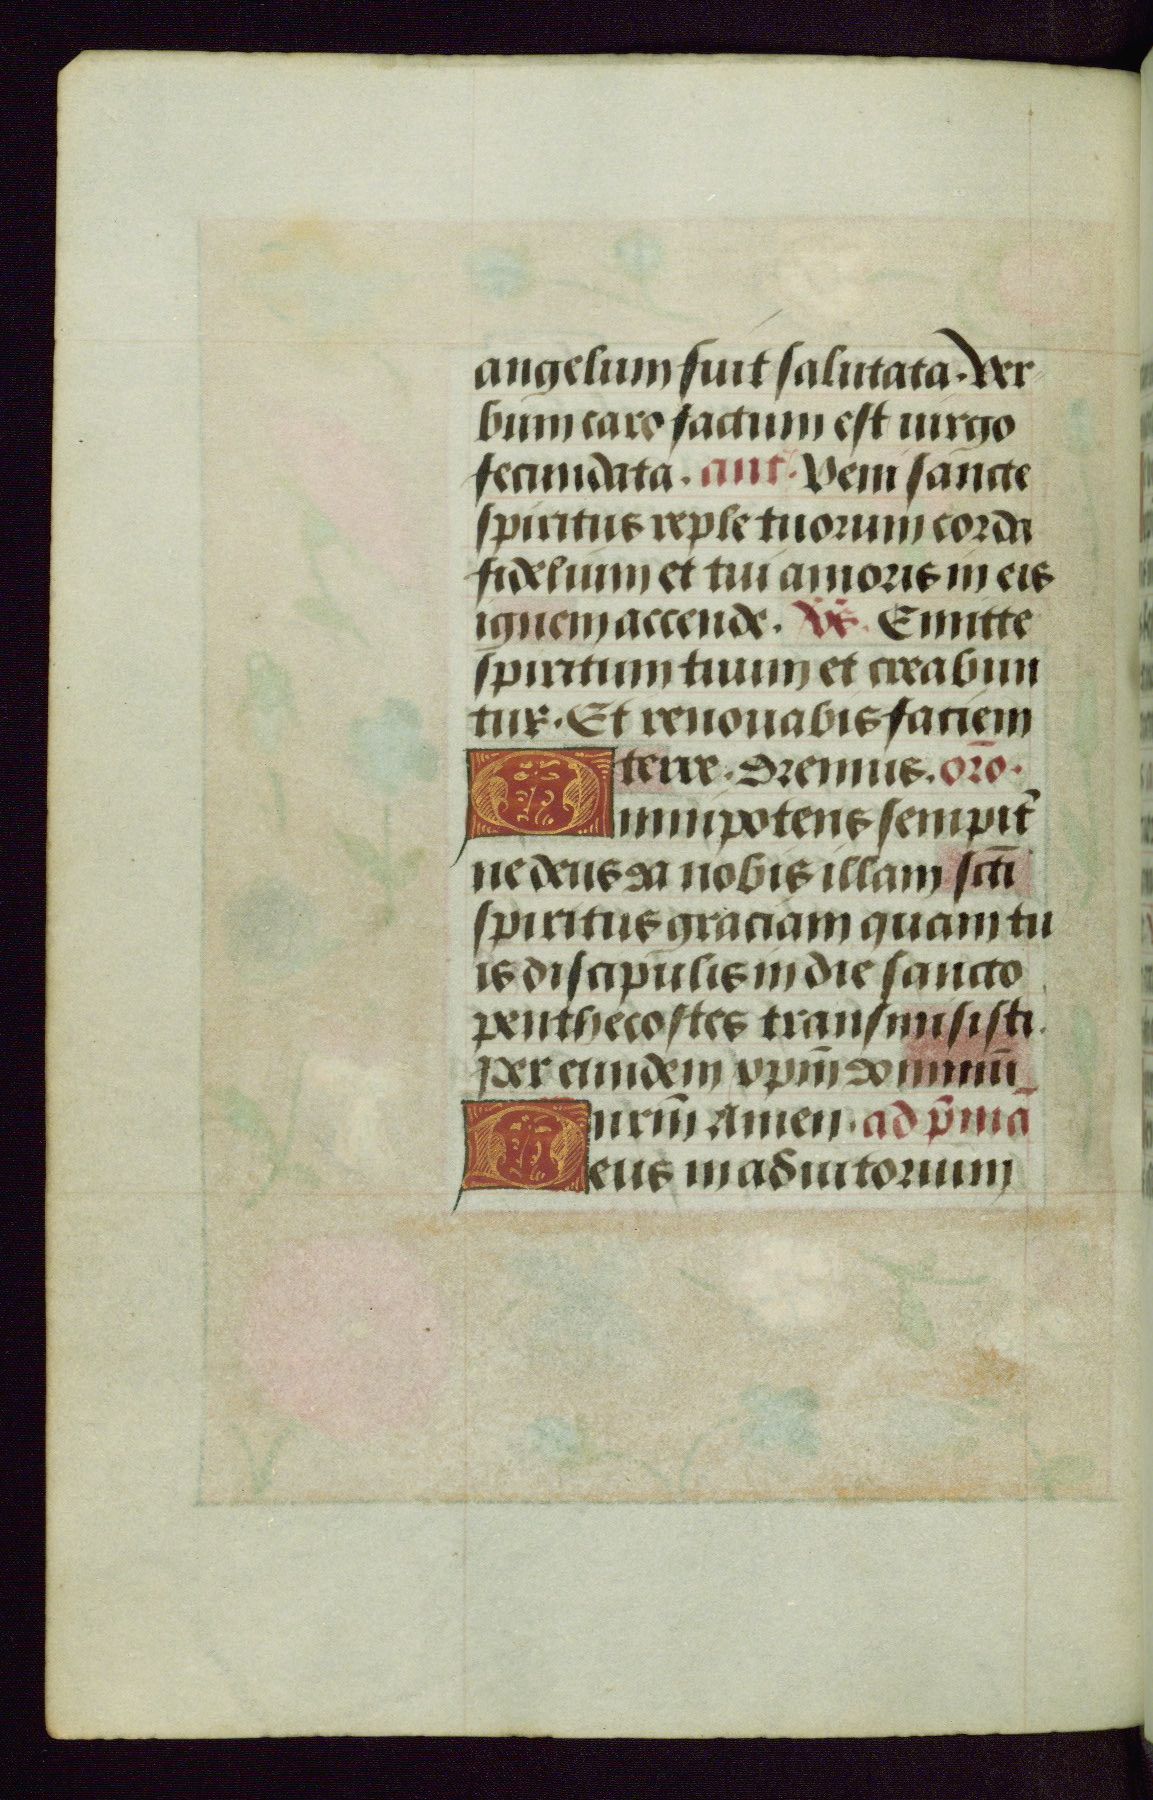 angelum fuit salutata. Ver
bum caro factum est uirgo
fecundata. ant. Veni sancte
spiritus reple tuorum corda
fidelium et tui amoris in eis
ignem accende. Vs. Emitte
spiritum tuum et creabun
tur. Et renouabis faciem
terre. Oremus. orō.
Omnipotens sempit̄
ne deus da nobis illam sct̄i
spiritus graciam quam tu
is discipulis in die sancto
penthecostes transmisisti.
per eiundem xpm̄ dominū
nrm̄ Amen. ad p̄mā
Deus in adiutorium